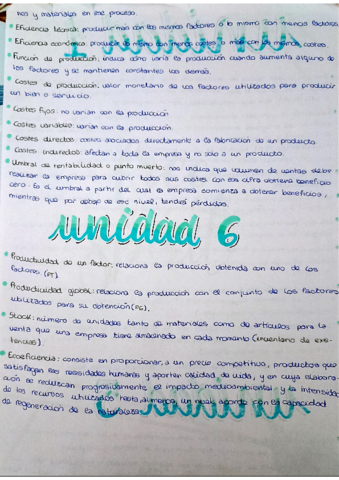 nos y materiales en ese proceso.
Eficiencia técnica: producir más con los mismos factores o lo mismo con menos factores
Eficiencia económica: producir lo mismo con menos costes o más con los mismos costes.
Función de producción: indica cómo varía la producción cuando aumenta alguno de
los factores y se mantienen constantes los demás.
Costes de producción: valor monetario de los factores utilizados para producir
un bien o servicio.
Costes fijos: no varían con la producción
Costes variables: varían con la producción.
Costes directos: costes asociados directamente a la fabricación de un producto.
Costes indirectos: afectan a toda la empresa y no sólo a un producto.
Umbral de rentabilidad o punto muerto: nos indica que volumen de ventas debe
realizar la empresa para cubrir todos sus costes con esa cifra obtiene beneficio
cero. Es el umbral a partir del cual la empresa comienza a obtener beneficios,
mientras que por debajo de ese nivel, tendrá pérdidas.
unidad 6
Productividad de un factor: relaciona la producción obtenida con uno de los
factores (PT).
Productividad global: relaciona la producción con el conjunto de los factores
utilizados para su obtención (PG).
Stock: número de unidades tanto de materiales como de artículos para la
venta que una empresa tiene almacenado en cada momento (inventario de exis-
tencias).
Ecoeficiencia: consiste en proporcionar, a un precio competitivo, productos que
satisfagan las necesidades humanas y aporten calidad de vida, y en cuya elabora-
ción se reduzcan progresivamente el impacto medioambiental y la intensidad
de los recursos utilizados hasta al menos, un nivel acorde con la capacidad
de regeneración de la naturaleza.